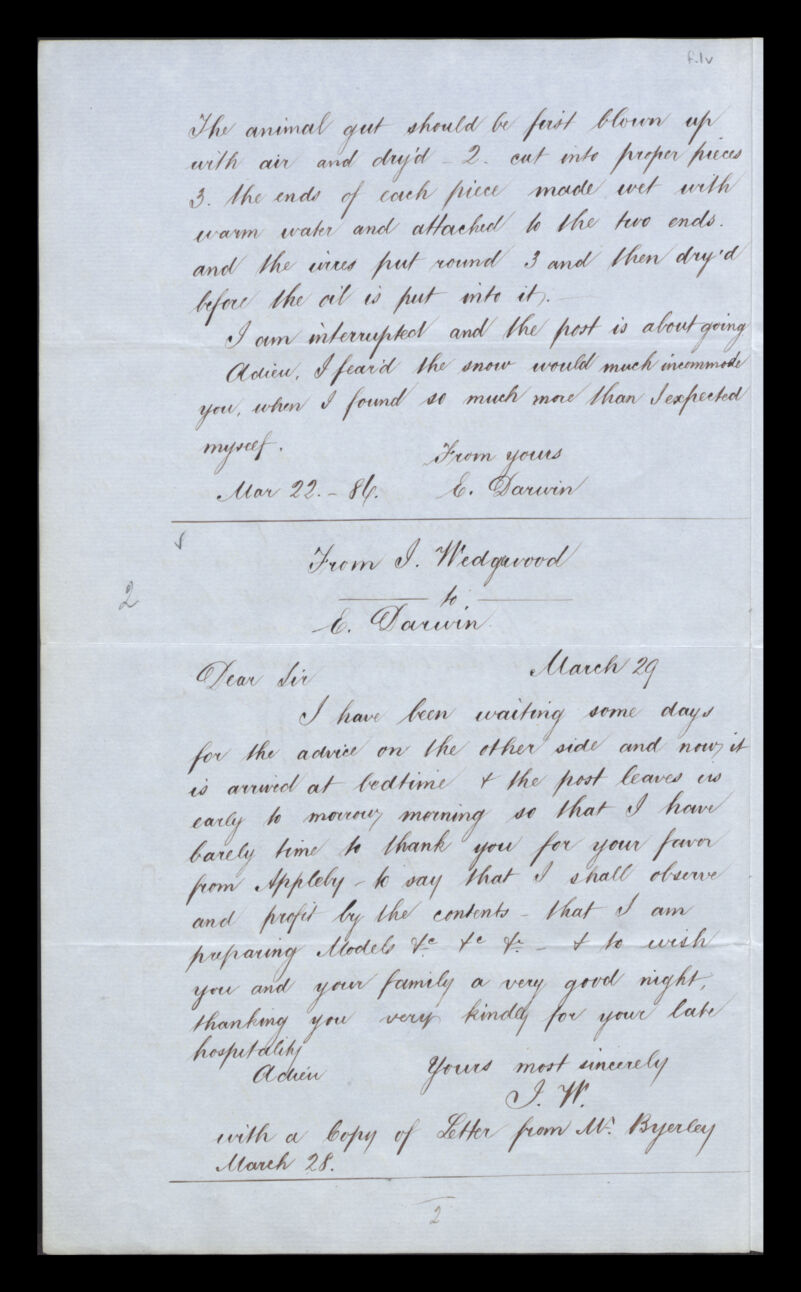 f.1v
The animal gut should be first blown up
with air and dry'd - 2. cut into proper pieces
3. the ends of each piece made wet with
warm water and attached to the two ends.
and the wires put round 3 and then dry'd
before the oil is put into it. —
I am interrupted and the post is about going
Adieu, I fear'd the snow would much incommode
you, when I found so much more than I expected
myself.
From yours
Mar 22. - 86. E. Darwin
2
From J. Wedgwood
to
E. Darwin.
Dear Sir March 29
I have been waiting some days
for the advice on the other side and now it
is arrived at bedtime & the post leaves us
early to morrow morning so that I have
barely time to thank you for your favor
from Appleby - to say that I shall observe
and profit by the contents - that I am
preparing Models &c &c &c - & to wish
you and your family a very good night,
thanking you very kindly for your late
hospitality
Adieu Yours most sincerely
J. W.
with a Copy of Letter from Mr. Byerley
March 28.
2